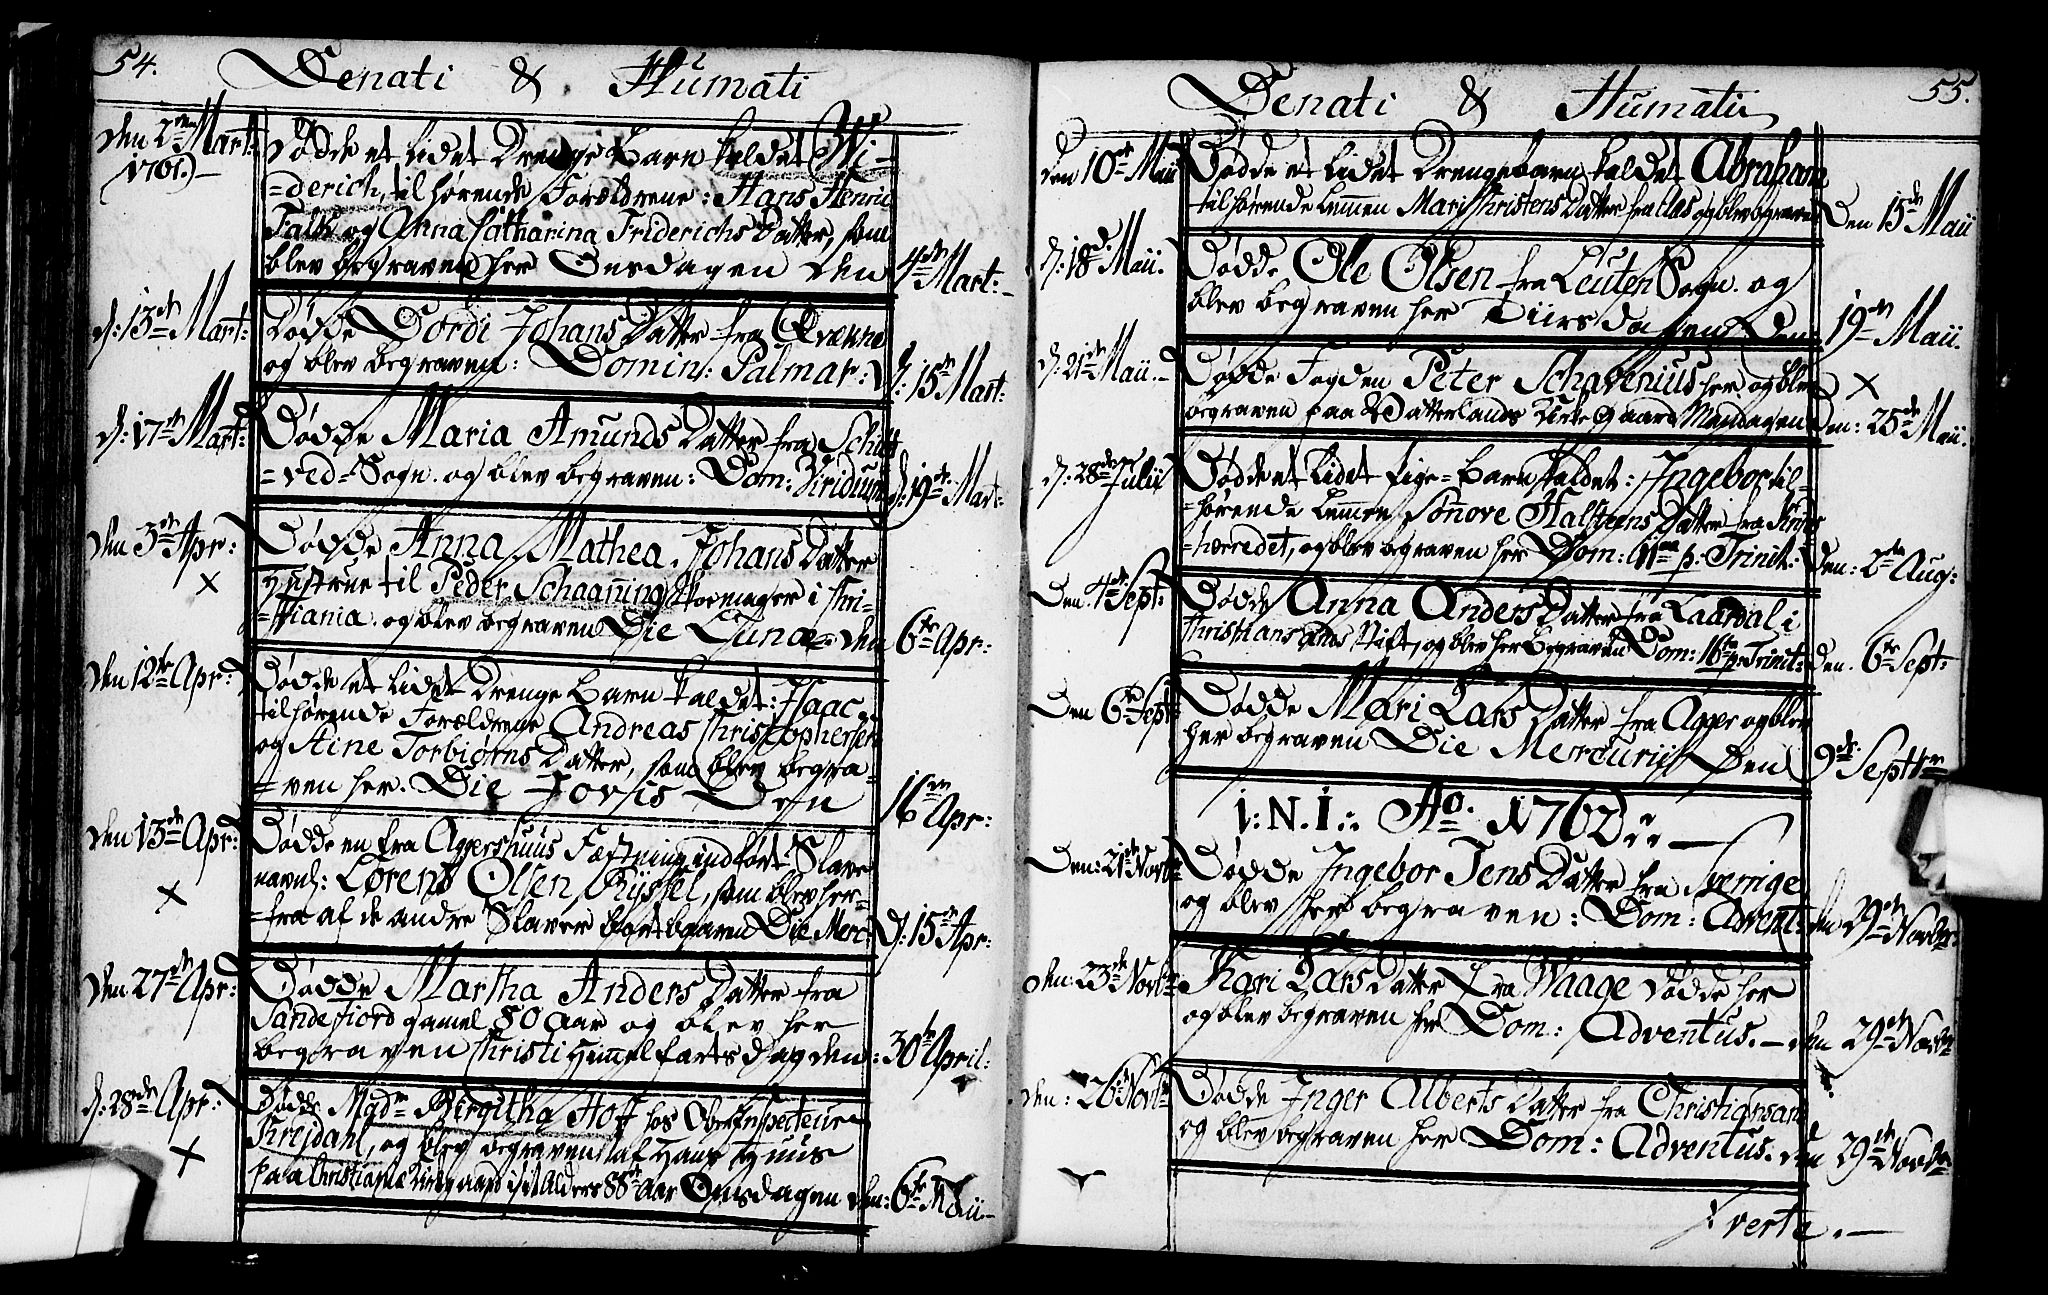 54.
Denati & Humati
den 2den Mart:
1761.
Døde et lidet Drenge Barn kaldet Wi-
=derich, tilhørende Forældrene: Hans Henric
Falk og Anna Catharina Friderichs Datter, som
blev begraven her Onsdagen den
4de Mart:
d: 13de Mart:
Døde Dordi Johans Datter fra
og blev begraven: Domin: Palmar:
d: 15de Mart:
d: 17de Mart:
Døde Maria Amunds Datter fra
=ved=Sogn. og blev begraven: Dom:
d: 19de Mart:
den 3de Apr:
Døde Anna Mathea Johans Datter
Hustrue til Peder Schaaning Skoemager i Chri-
=stiania. og blev begraven Die Lunæ den
6te Apr:
den 12te Apr:
Døde et lidet Drenge Barn kaldet: Isaac
tilhørende Forældrene Andreas Christophersen
og Stine Torbiørns Datter, som blev begra-
=ven her. Die Jovis Den
16de Apr:
den 13de Apr:
Døde en fra Aggershuus Fæstning indført Slave
navnl: Lorens Olsen Ryssel, som blev her-
=fra af de andre Slaver bortbaaren Die Merc:
d: 15de Apr:
den 27de Apr:
Døde Martha Anders Datter fra
Sandefiord gamel 80 Aar og blev her
begraven Christi Himmelfarts Dag den:
30te April:
d: 28de Apr:
Døde Madme Birgitha Hof hos OberInspecteur
og blev begraven af Hans Huus
paa Christianiæ Kirkegaard i sit Alders 88de Aar Onsdagen den:
6te Maii
55.
Denati & Humati
den 10de Maii
Døde et lidet Drengebarn kaldet Abraham
tilhørende Lemmen Mari Christens Datter fra Aas og blev begraven
Den 15de Maii
d: 18de Maii.
Døde Ole Olsen fra Leuten Sogn. og
blev begraven her Tiirsdagen Den
19de Maii.
d: 21de Maii.
Døde Fogden Peter Schavenius her og blev
begraven paa Watterlands Kirke Gaard Mandagen
Den: 25de Maii.
d: 28de Julii
Døde et lidet Pige=Barn kaldet: Ingebor til-
=hørende Lemmen Sønove Halsteens Datter fra
=herredet, og blev begraven her Dom: 11ma p: Trinit:
Den: 2de Aug:
Den 4de Sept:
Døde Anna Anders Datter fra Laardal i
Christiansands Stift, og blev her begraven Dom: 16ta p: Trinit:
den. 6te Sept:
Den 6te Sept:
Døde Mari Lars Datter fra Agger og blev
her begraven Die Mercurij Den
9de Septbr
I: N. I: Ao. 1762
Den: 21de Novbr
Døde Ingebor Jens Datter fra Sverrige
og blev her begraven: Dom: Advent:
den 29de Novbr
den 23de Novbr
Kari Lars Datter fra Waage døde her
og blev begraven her Dom: Adventus.
den 29de Novbr
den: 26de Novbr
Døde Inger Alberts Datter fra Christiansand
og blev begraven her Dom: Adventus.
den 29de Novbr
verte.